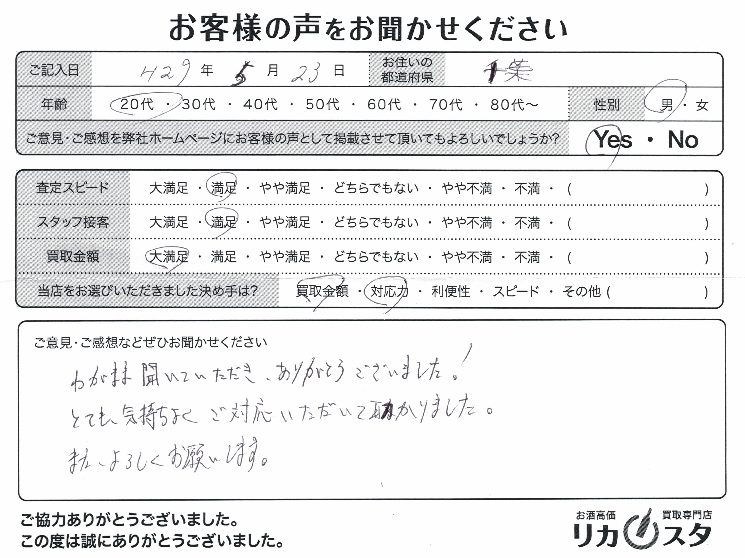 お客様の声をお聞かせください
ご記入日 H29年 5月 23日 お住いの都道府県 千葉
年齢 20代・30代・40代・50代・60代・70代・80代～ 性別 男・女
ご意見・ご感想を弊社ホームページにお客様の声として掲載させて頂いてもよろしいでしょうか? Yes・No
査定スピード 大満足・満足・やや満足・どちらでもない・やや不満・不満・( )
スタッフ接客 大満足・満足・やや満足・どちらでもない・やや不満・不満・( )
買取金額 大満足・満足・やや満足・どちらでもない・やや不満・不満・( )
当店をお選びいただきました決め手は? 買取金額・対応力・利便性・スピード・その他( )
ご意見・ご感想などぜひお聞かせください
わがまま聞いていただき、ありがとうございました!
とても、気持ちよくご対応いただいて助かりました。
また、よろしくお願いします。
ご協力ありがとうございました。
この度は誠にありがとうございました。
お酒高価 買取専門店
リカスタ